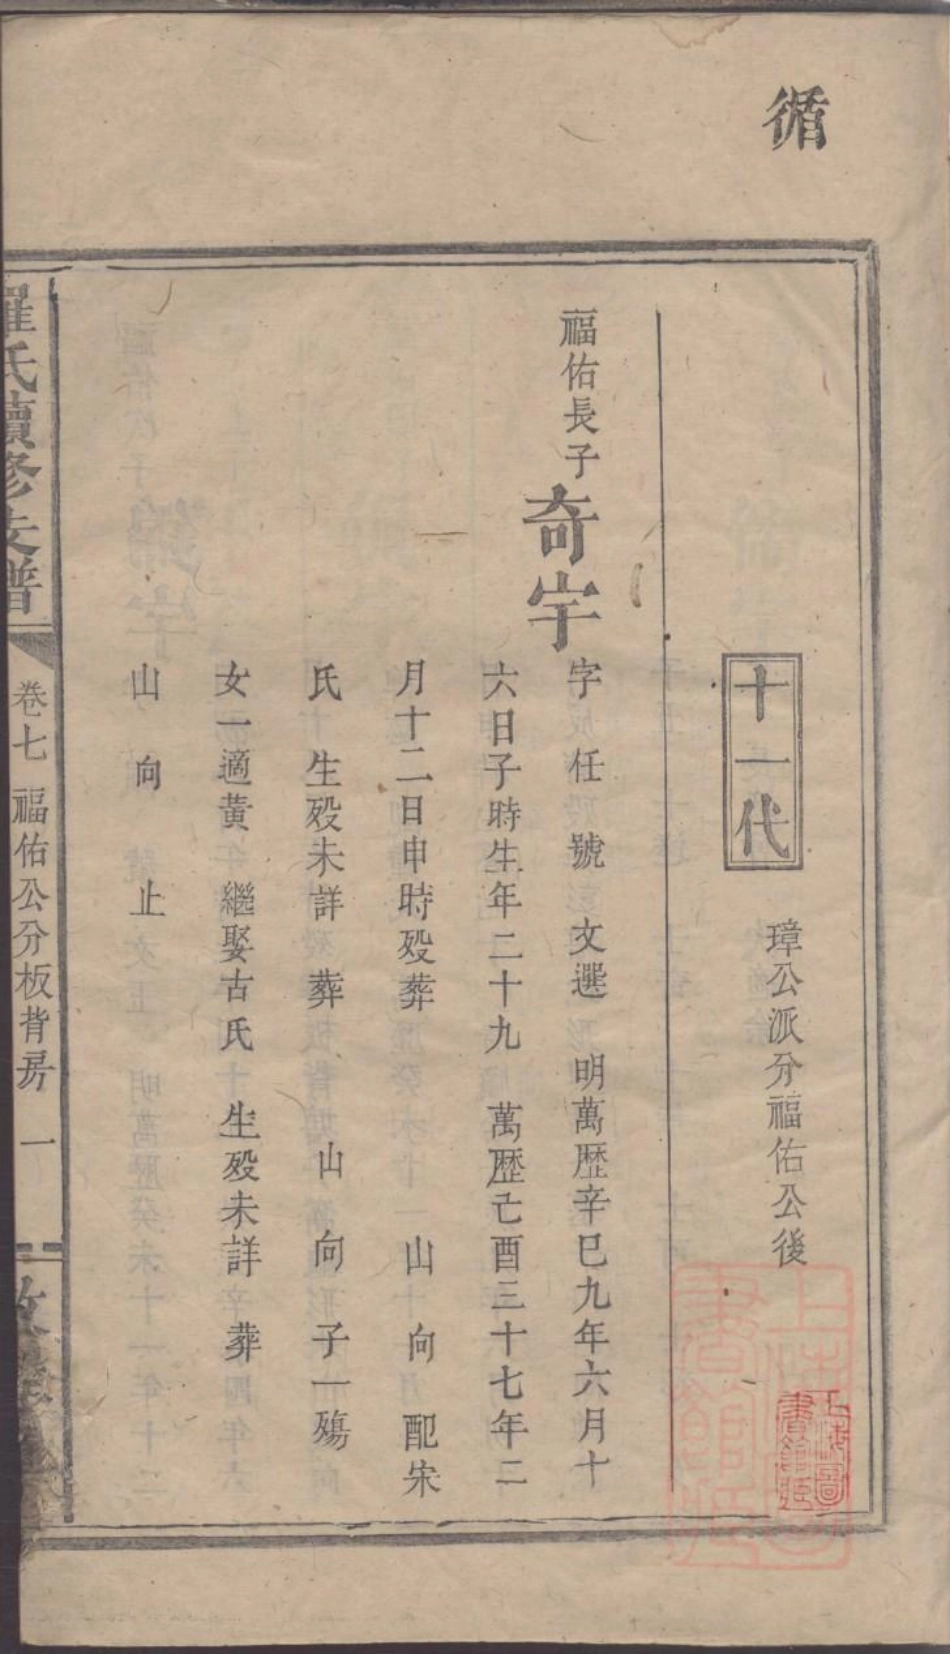 循
十一代
璋公派分福佑公後
福佑長子
奇宇
字 任 號 文選 明萬歷辛巳九年六月十
六日子時生年二十九 萬歷亡酉三十七年二
月十二日申時殁葬 山 向 配宋
氏 生殁未詳 葬 山 向 子一殤
女一適黃 繼娶古氏十生殁未詳 葬
山 向 止
羅氏續修支譜
卷七 福佑公分板背房 一
上海圖書館藏